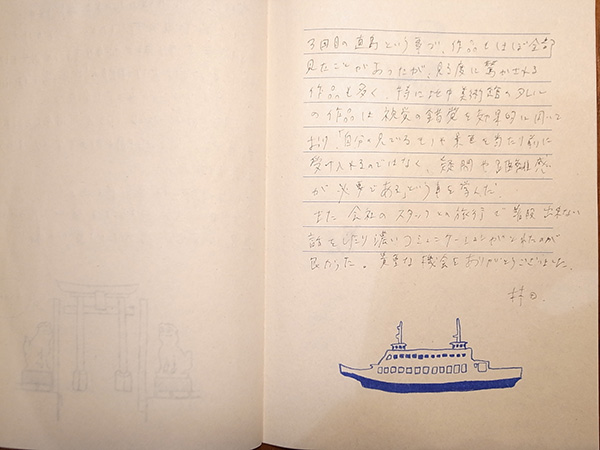 3回目の直島という事で、作品もほぼ全部
見たことがあったが、見る度に驚かされる
作品も多く、特に地中美術館のタレル
の作品は視覚の錯覚を効果的に用いて
おり、「自分の見ているものや景色を当たり前に
受け入れるのではなく、疑問や
が必要である」という事を学んだ。
また会社のスタッフとの旅行で普段出来ない
話をしたり濃いコミュニケーションがとれたのが
良かった。貴重な機会をありがとうございました。